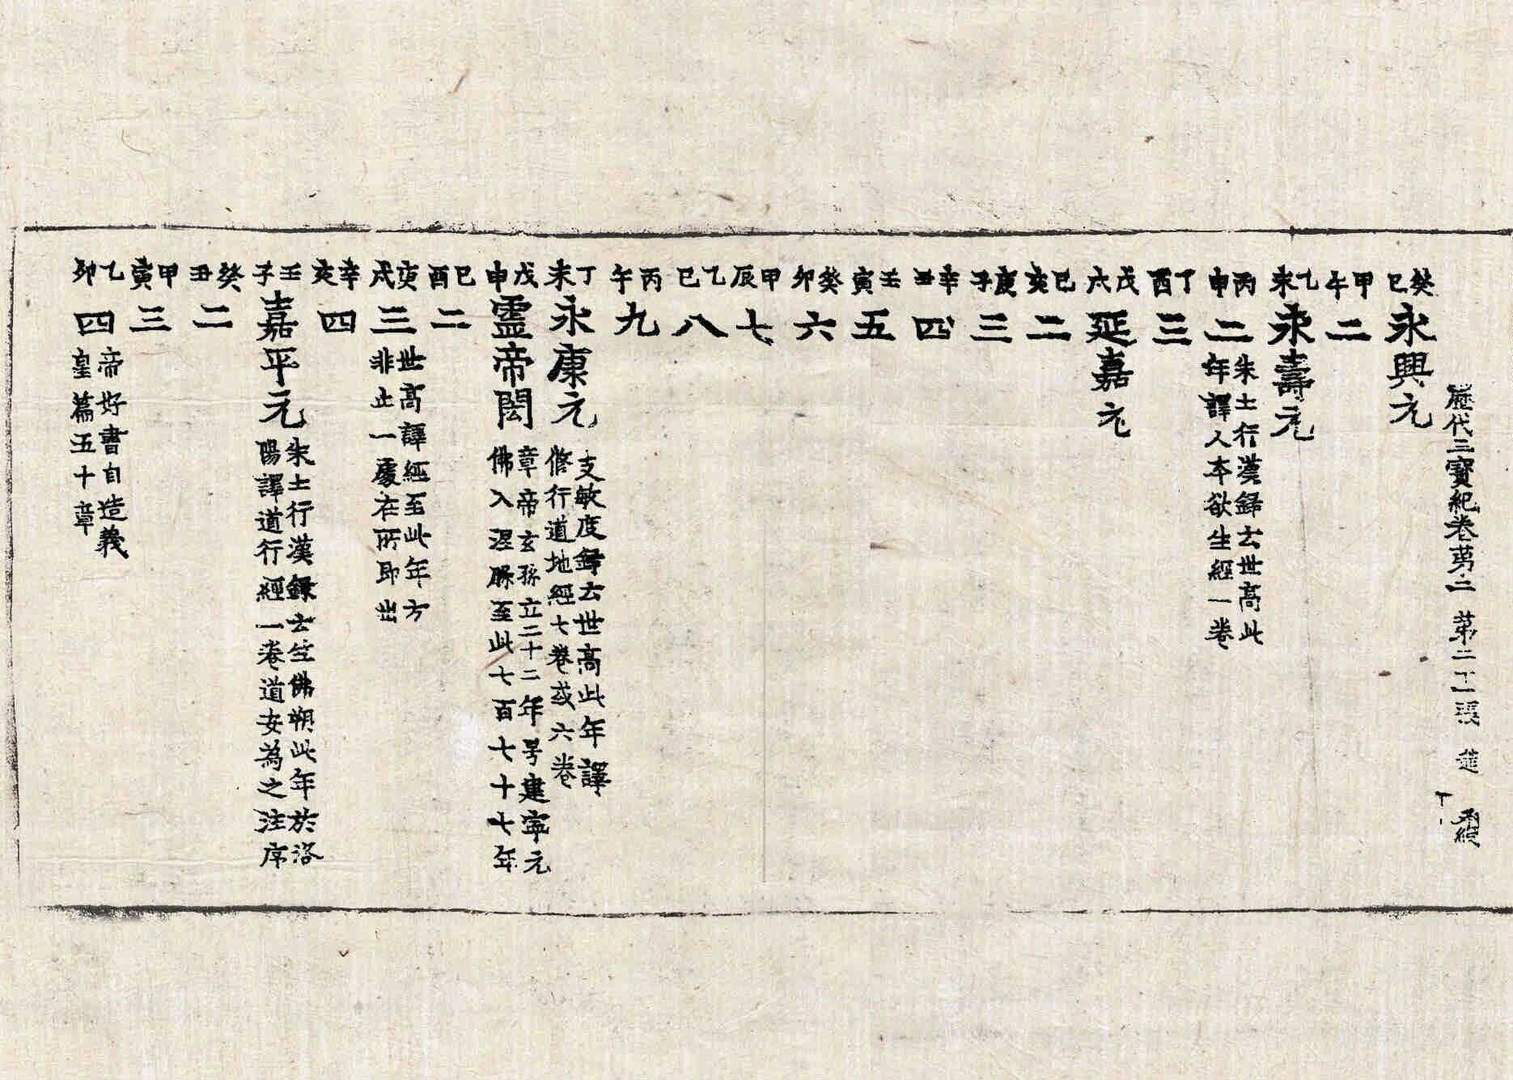 歷代三寳紀卷苐二 苐二十一張 楚
癸巳永興元
甲午二
乙未永壽元
丙申二 朱士行漢録云世髙此
年譯人本欲生經一卷
丁酉三
戊戌延嘉元
己亥二
庚子三
辛丑四
壬寅五
癸卯六
甲辰七
乙巳八
丙午九
丁未永康元 支敏度録云世髙此年譯
脩行道地經七卷或六卷
戊申靈帝閎 章帝玄孫立二十二年号建寧元
佛入涅槃至此七百七十七年
己酉二
庚戌三 世髙譯經至此年方
非止一處在所即出
辛亥四
壬子嘉平元 朱士行漢録云竺佛朔此年於洛
陽譯道行經一卷道安為之注序
癸丑二
甲寅三
乙卯四 帝好書自造義
皇篇五十章